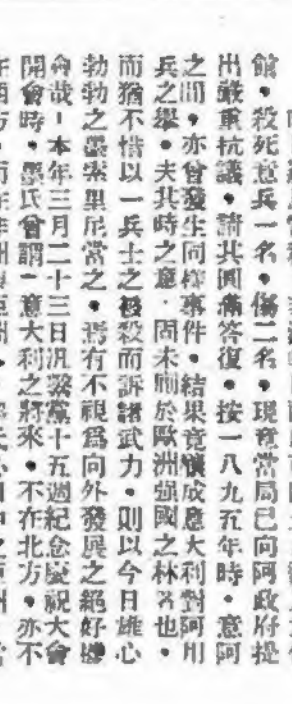 館。殺死意兵一名。傷二名。現意當局已向阿政府提
出嚴重抗議。請其圓滿答復。按一八九五年時。意阿
之間。亦曾發生同樣事件。結果竟釀成意大利對阿用
兵之舉。夫其時之意。固未廁於歐洲强國之林者也。
而猶不惜以一兵士之被殺而訴諸武力。則以今日雄心
勃勃之墨索里尼當之。焉有不視爲向外發展之絕好機
會哉。本年三月二十三日汎繫黨十五週紀念慶祝大會
開會時。墨氏曾謂「意大利之將來。不在北方。亦不